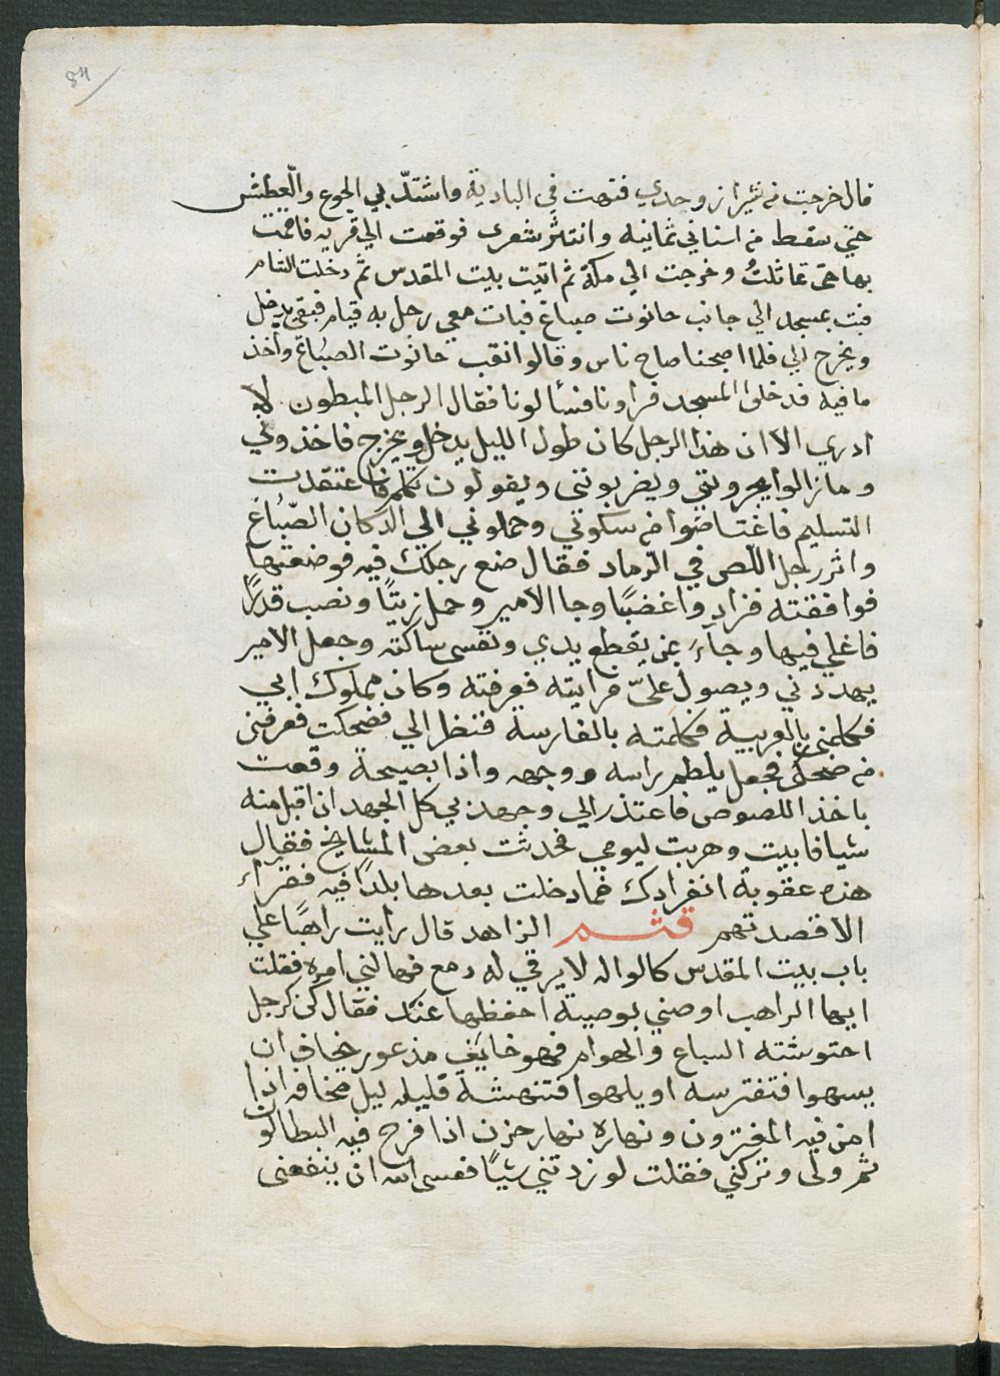 84
قال خرجت من شيراز وحدي فتهت في البادية واشتدّ بي الجوع والعطش
حتي سقط من اسناني ثمانية وانتثر شعرى فوقعت الي قرية فاقمت
بها حتى تماثلتُ وخرجت الي مكة ثم اتيت بيت المقدس ثم دخلت الشام
فبت بمسجد الي جانب حانوت صباغ فبات معي رجل به قيام فبقي يدخل
ويخرج الي فلما اصبحنا صاح ناس وقالوا نقب حانوت الصباغ واخذ
ما فيه فدخلوا المسجد فراونا فسألونا فقال الرجل المبطون لا
ادري الا ان هذا الرجل كان طول الليل يدخل ويخرج فاخذوني
وما زالوا يجرونني ويضربونني ويقولون تكلم فاعتقدت
التسليم فاغتاضوا من سكوتي وحملوني الي الدكان الصّباغ
واثر رجل اللص في الرماد فقال ضع رجلك فيه فوضعتها
فوافقته فزادوا غضبًا وجا الامير وحمل زيتًا ونصب قدرًا
فاغلي فيها وجاءَ بمن يقطع يدي ونفسى ساكنه وجعل الامير
يهددني ويصول علىّ فرايته فعرفته وكان مملوك ابي
فكلمني بالعربية فكلمته بالفارسة فنظر الي فضحكت فعرفني
من ضحكي فجعل يلطم راسه ووجهه واذا بصيحة وقعت
باخذ اللصوص فاعتذر الي وجهد بي كل الجهد ان اقبل منه
شيا فابيت وهربت ليومي فحدثت بعض المشايخ فقال
هذه عقوبة انفرادك فما دخلت بعدها بلدًا فيه فقراء
الا قصدتهم قثم الزاهد قال رايت راهبًا علي
باب بيت المقدس كالواله لا يرقي له دمع فهالني امره فقلت
ايها الراهب اوصني بوصية احفظها عنك فقال كن كرجل
احتوشته السباع والهوام فهو خايف مذعور يخاف ان
يسهوا فتفترسه او يلهوا فتنهشة فليله ليل مخافه اذا
امن فيه المغترون ونهاره نهار حزن اذا فرح فيه البطالون
ثم ولى وتركني فقلت لو زدتني شيًا فعسى الله ان ينفعنى